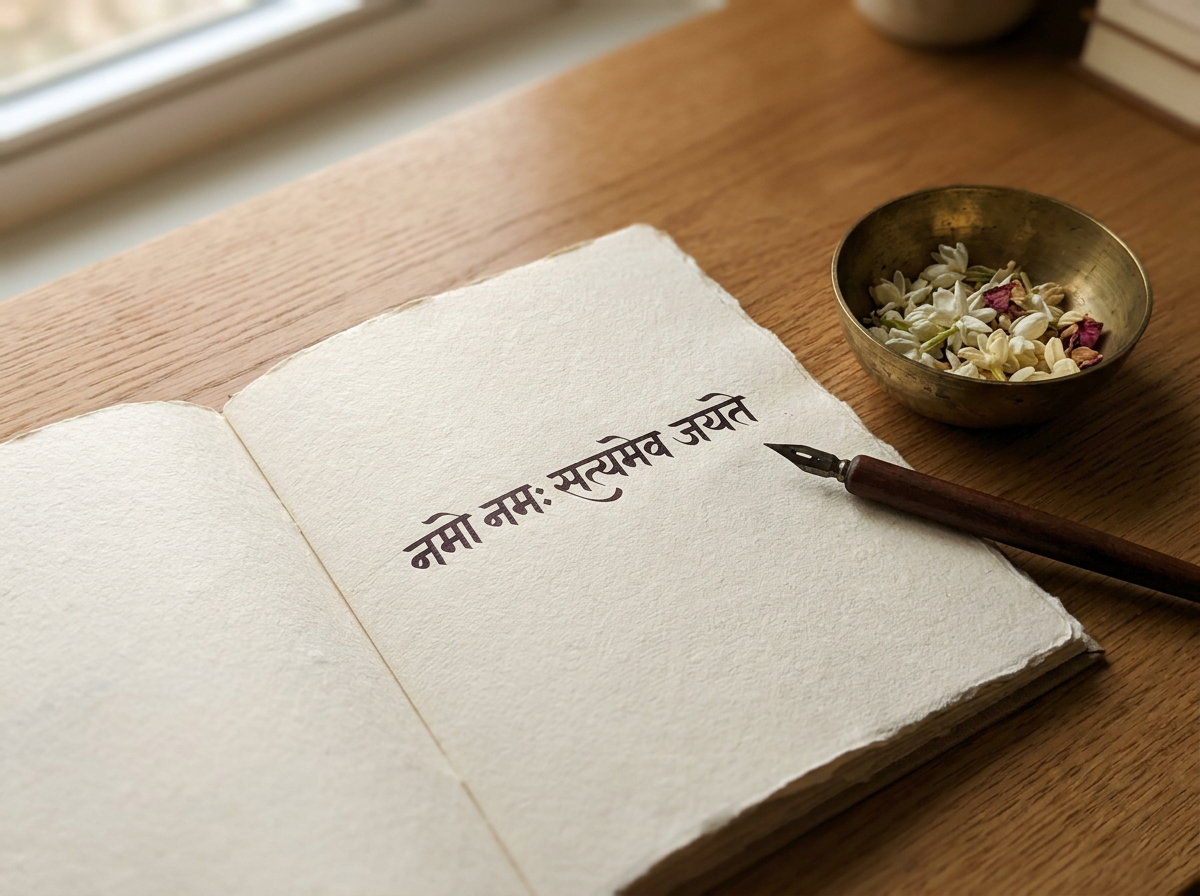 नमो नमः सत्यमेव जयते